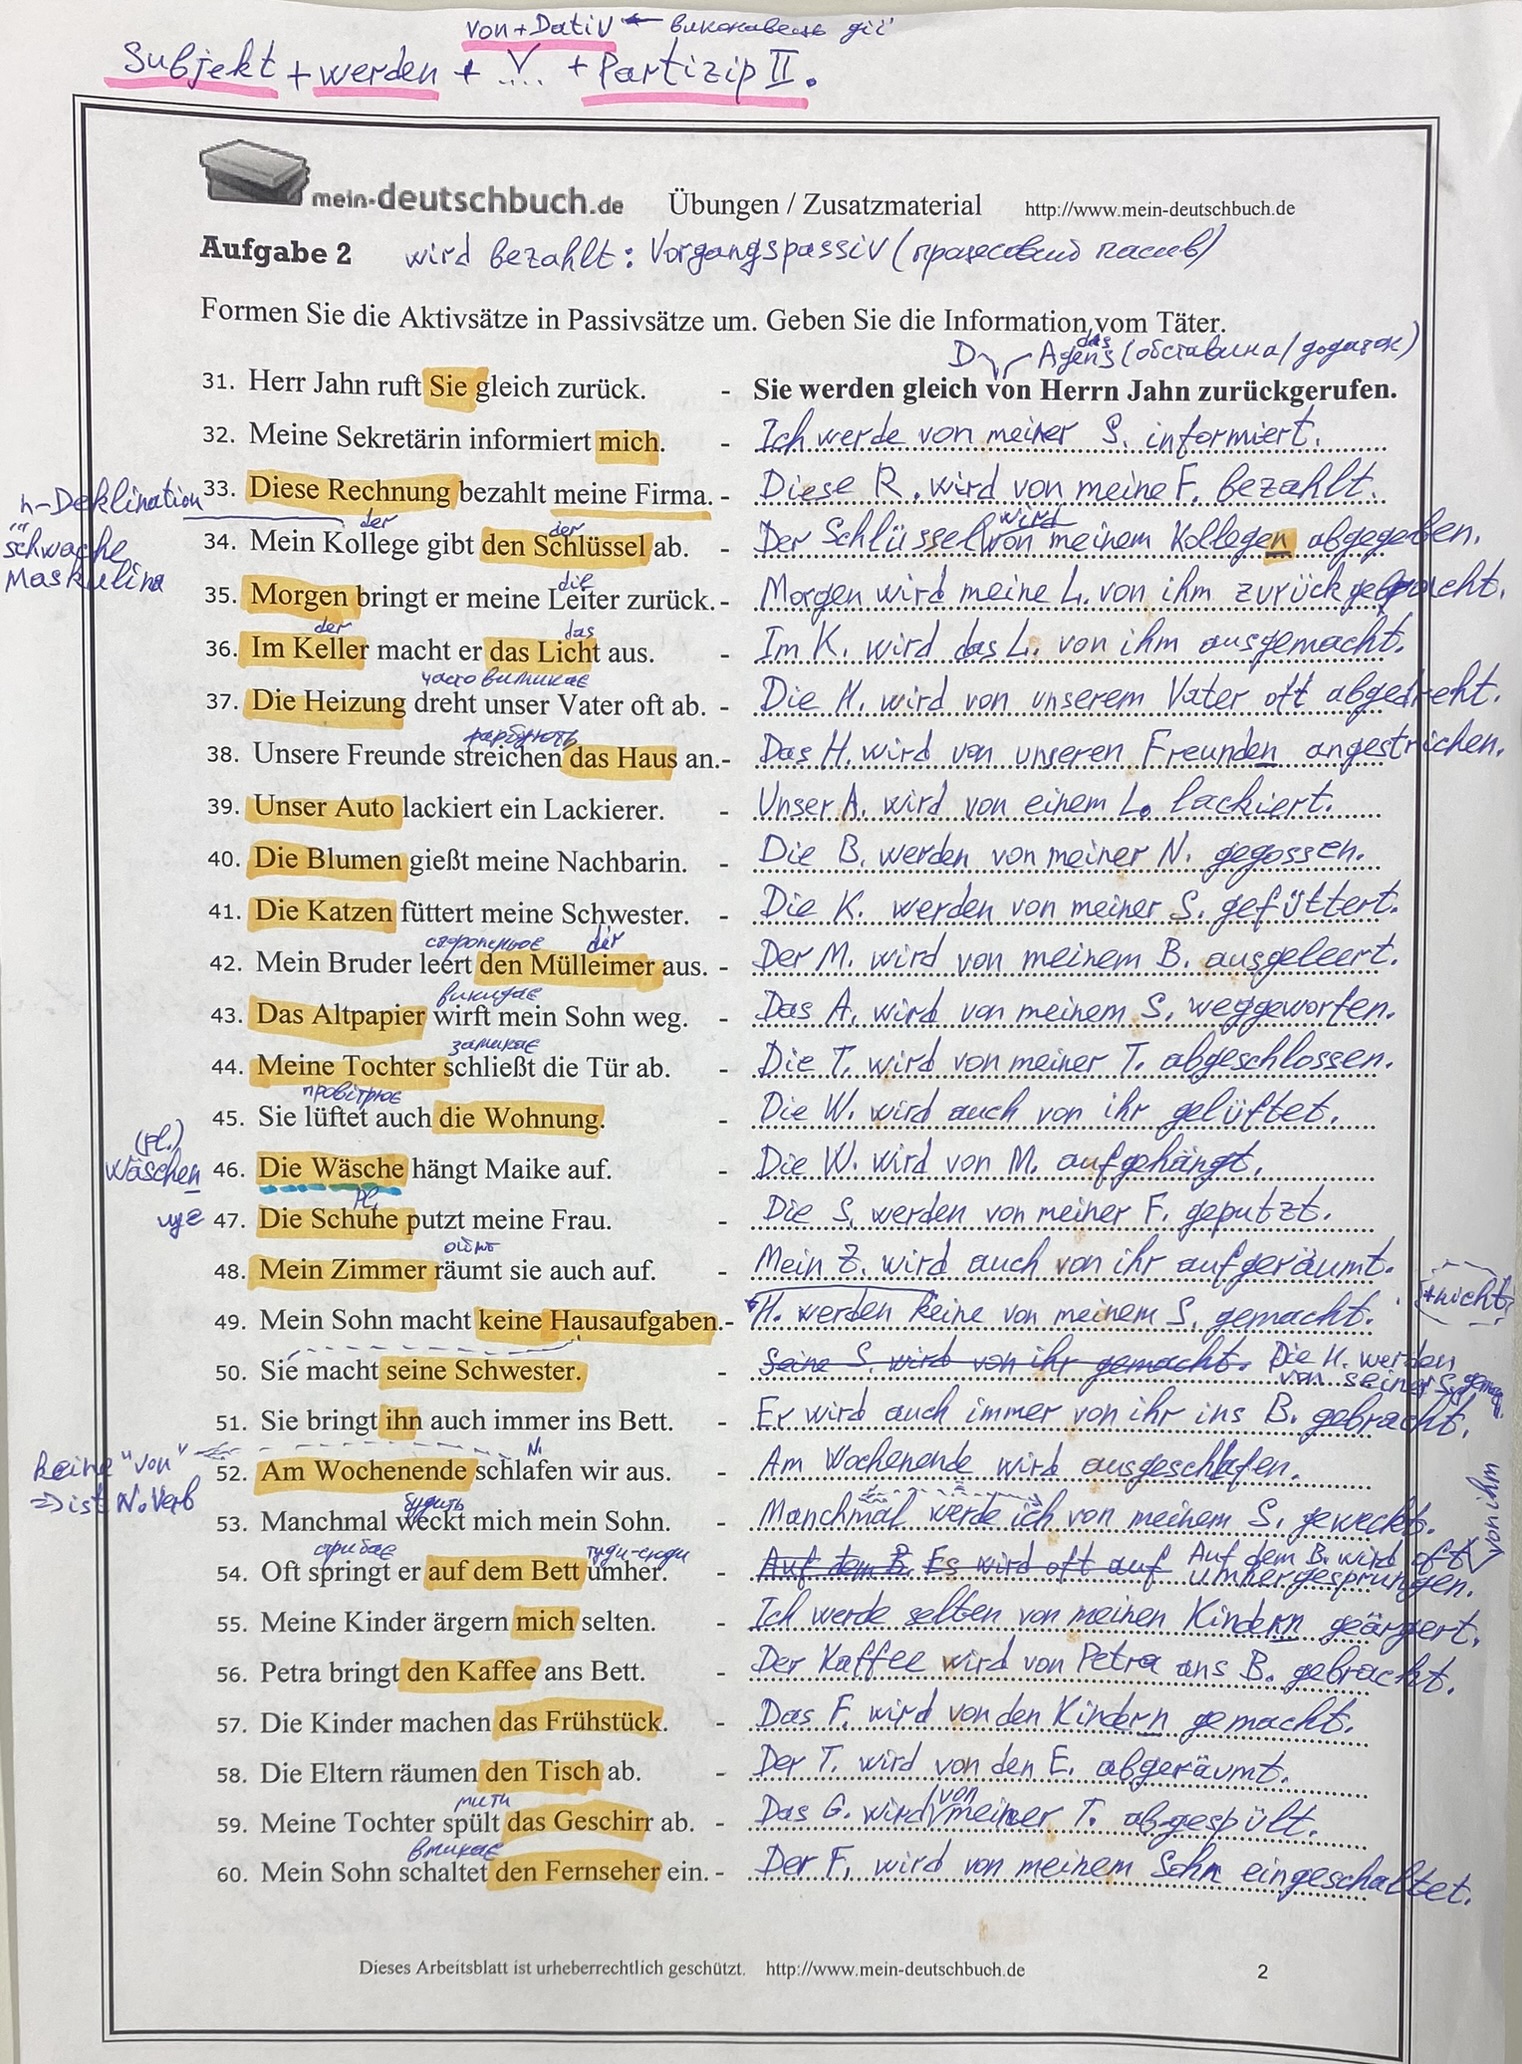 von+Dativ ← виконавець дії
Subjekt + werden + .... + Partizip II.
mein-deutschbuch.de Übungen / Zusatzmaterial http://www.mein-deutschbuch.de
Aufgabe 2 wird bezahlt: Vorgangspassiv (процесовий пасив)
Formen Sie die Aktivsätze in Passivsätze um. Geben Sie die Information vom Täter.
D das Agens (обставина/додаток)
31. Herr Jahn ruft Sie gleich zurück. - Sie werden gleich von Herrn Jahn zurückgerufen.
32. Meine Sekretärin informiert mich. - Ich werde von meiner S. informiert.
n-Deklination
33. Diese Rechnung bezahlt meine Firma. - Diese R. wird von meine F. bezahlt.
der der wird
schwache Maskulina
34. Mein Kollege gibt den Schlüssel ab. - Der Schlüssel von meinem Kollegen abgegeben.
die
35. Morgen bringt er meine Leiter zurück. - Morgen wird meine L. von ihm zurückgebracht.
der das
36. Im Keller macht er das Licht aus. - Im K. wird das L. von ihm ausgemacht.
часто вимикає
37. Die Heizung dreht unser Vater oft ab. - Die H. wird von unserem Vater oft abgedreht.
фарбують
38. Unsere Freunde streichen das Haus an. - Das H. wird von unseren Freunden angestrichen.
39. Unser Auto lackiert ein Lackierer. - Unser A. wird von einem L. lackiert.
40. Die Blumen gießt meine Nachbarin. - Die B. werden von meiner N. gegossen.
41. Die Katzen füttert meine Schwester. - Die K. werden von meiner S. gefüttert.
der
42. Mein Bruder leert den Mülleimer aus. - Der M. wird von meinem B. ausgeleert.
викидає
43. Das Altpapier wirft mein Sohn weg. - Das A. wird von meinem S. weggeworfen.
замикає
44. Meine Tochter schließt die Tür ab. - Die T. wird von meiner T. abgeschlossen.
провітрює
45. Sie lüftet auch die Wohnung. - Die W. wird auch von ihr gelüftet.
(Pl.) Wäschen
46. Die Wäsche hängt Maike auf. - Die W. wird von M. aufgehängt.
Pl.
47. Die Schuhe putzt meine Frau. - Die S. werden von meiner F. geputzt.
48. Mein Zimmer räumt sie auch auf. - Mein Z. wird auch von ihr aufgeräumt.
+nicht
49. Mein Sohn macht keine Hausaufgaben. - H. werden keine von meinem S. gemacht.
50. Sie macht seine Schwester. - Seine S. wird von ihr gemacht. Die H. werden von seiner S. gemacht.
51. Sie bringt ihn auch immer ins Bett. - Er wird auch immer von ihr ins B. gebracht.
keine "von" N.
⇒ ist N. Verb
52. Am Wochenende schlafen wir aus. - Am Wochenende wird ausgeschlafen.
будить
53. Manchmal weckt mich mein Sohn. - Manchmal werde ich von meinem S. geweckt.
стрибає туди-сюди von ihm
54. Oft springt er auf dem Bett umher. - Auf dem B. Es wird oft auf Auf dem B. wird oft umhergesprungen.
55. Meine Kinder ärgern mich selten. - Ich werde selten von meinen Kindern geärgert.
56. Petra bringt den Kaffee ans Bett. - Der Kaffee wird von Petra ans B. gebracht.
57. Die Kinder machen das Frühstück. - Das F. wird von den Kindern gemacht.
58. Die Eltern räumen den Tisch ab. - Der T. wird von den E. abgeräumt.
мити von
59. Meine Tochter spült das Geschirr ab. - Das G. wird meiner T. abgespült.
вмикає
60. Mein Sohn schaltet den Fernseher ein. - Der F. wird von meinem Sohn eingeschaltet.
Dieses Arbeitsblatt ist urheberrechtlich geschützt. http://www.mein-deutschbuch.de 2